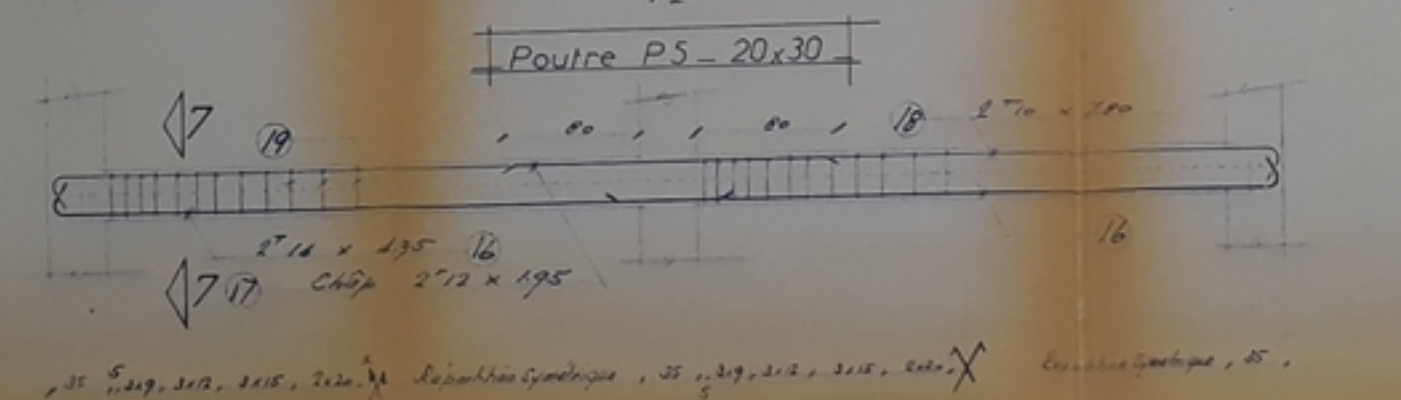 Poutre P5 _ 20x30
7 19 80 80 18
16 16
7 17 Chap 2T12 x 1.95
, 35 5 , 3x9, 3x12, 3x15, 2x20, Répartition Symétrique , 35 , 5 3x9, 3x12, 3x15, 2x20, Symétrique , 35 ,